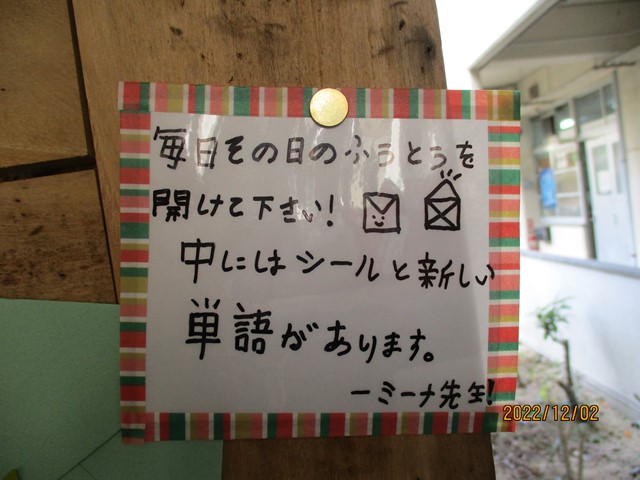 毎日その日のふうとうを
開けて下さい!
中にはシールと新しい
単語があります。
ーミーナ先生!
2022/12/02